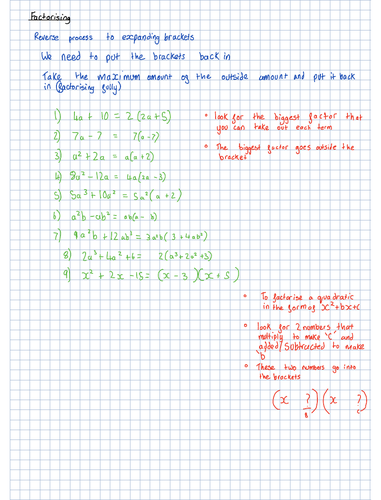 Factorising
Reverse process to expanding brackets
We need to put the brackets back in
Take the maximum amount of the outside amount and put it back
in (factorising fully)
1) 4a + 10 = 2(2a+5)
2) 7a - 7 = 7(a-7)
3) a² + 2a = a(a+2)
4) 8a² - 12a = 4a(2a-3)
5) 5a³ + 10a² = 5a²(a+2)
6) a²b - ab² = ab(a - b)
7) 9a²b + 12ab³ = 3ab(3 + 4ab²)
8) 2a³ + 4a² + 6 = 2(a³+2a²+3)
9) x² + 2x - 15 = (x - 3)(x + 5)
• look for the biggest factor that
you can take out each term
• The biggest factor goes outside the
bracket
• To factorise a quadratic
in the form of x²+bx+c
• look for 2 numbers that
multiply to make 'c' and
added/subtracted to make
'b
• These two numbers go into
the brackets
(x ?)(x ?)